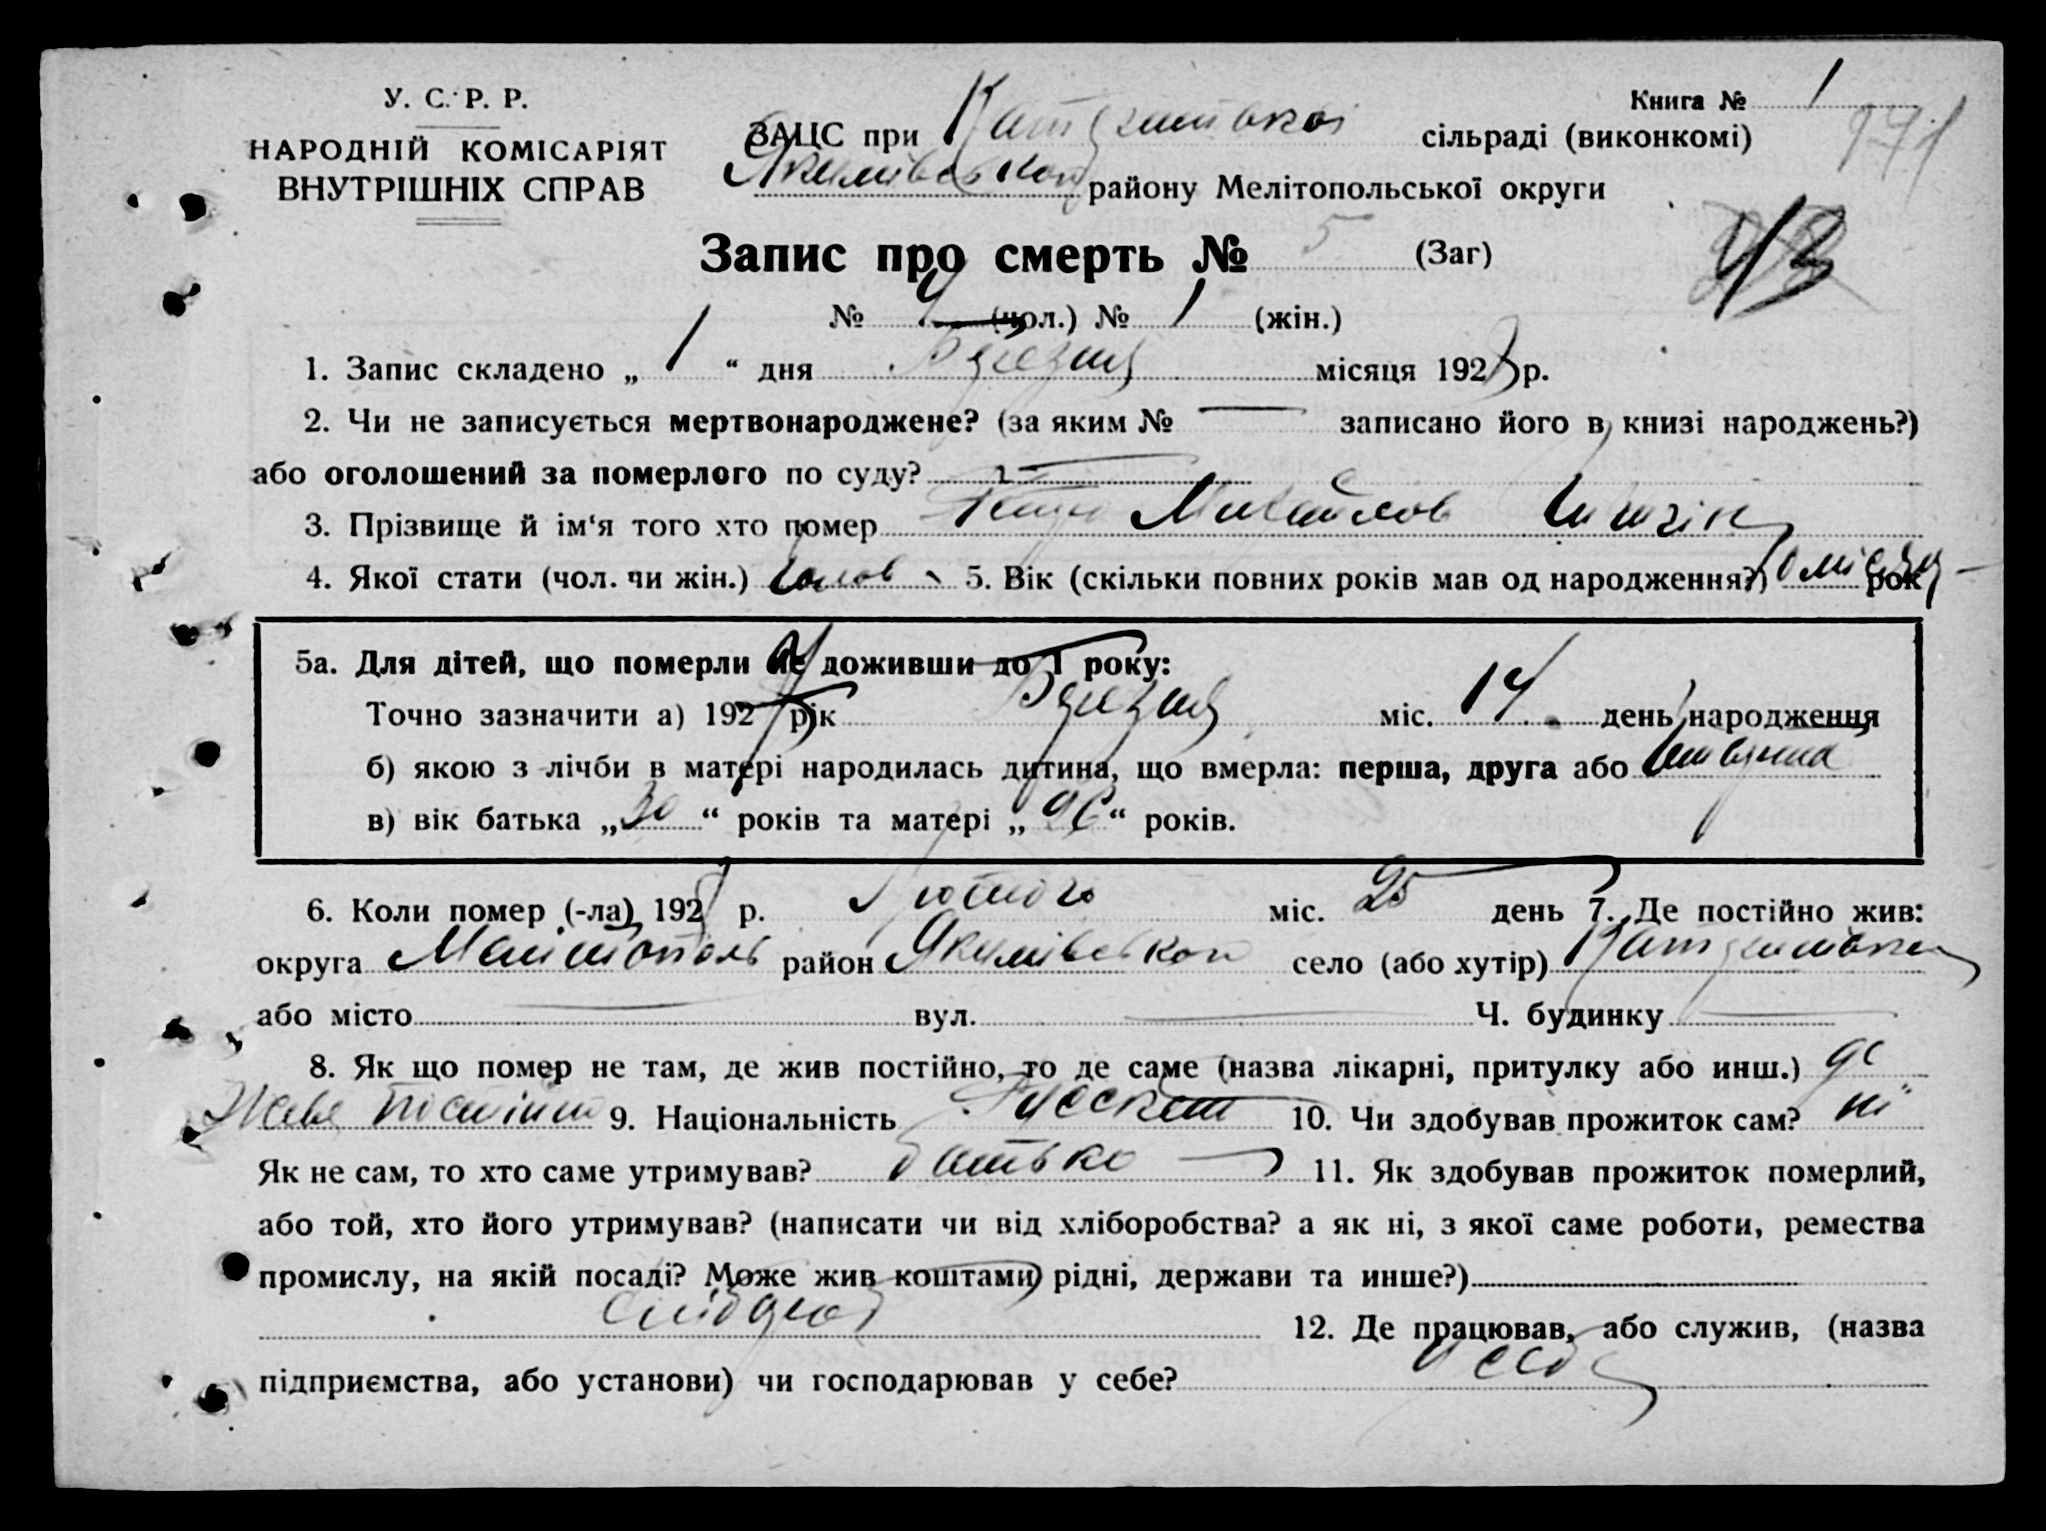 У. С. Р. Р.
НАРОДНІЙ КОМІСАРІЯТ
ВНУТРІШНІХ СПРАВ
Книга № 1
ЗАЦС при сільраді (виконкомі)
Якимівської району Мелітопольської округи
Запис про смерть № 5 (Заг)
№ 4 (чол.) № 1 (жін.)
1. Запис складено „ 1 “ дня Березня місяця 1928 р.
2. Чи не записується мертвонароджене? (за яким № — записано його в книзі народжень?)
або оголошений за померлого по суду? —
3. Прізвище й ім‘я того хто помер Михайлов
4. Якої стати (чол. чи жін.) 5. Вік (скільки повних років мав од народження?) місяц рок
5а. Для дітей, що померли не доживши до 1 року:
Точно зазначити а) 1927 рік Березня міс. 14 день народження
б) якою з лічби в матері народилась дитина, що вмерла: перша, друга або
в) вік батька „ 30 “ років та матері „ “ років.
6. Коли помер (-ла) 1928 р. Лютого міс. 25 день 7. Де постійно жив:
округа Мелітополь район Якимівської село (або хутір)
або місто — вул. — Ч. будинку —
8. Як що помер не там, де жив постійно, то де саме (назва лікарні, притулку або инш.) де
живе постійно 9. Національність 10. Чи здобував прожиток сам? ні
Як не сам, то хто саме утримував? батько 11. Як здобував прожиток померлий,
або той, хто його утримував? (написати чи від хліборобства? а як ні, з якої саме роботи, ремества
промислу, на якій посаді? Може жив коштами рідні, держави та инше?)
12. Де працював, або служив, (назва
підприємства, або установи) чи господарював у себе?